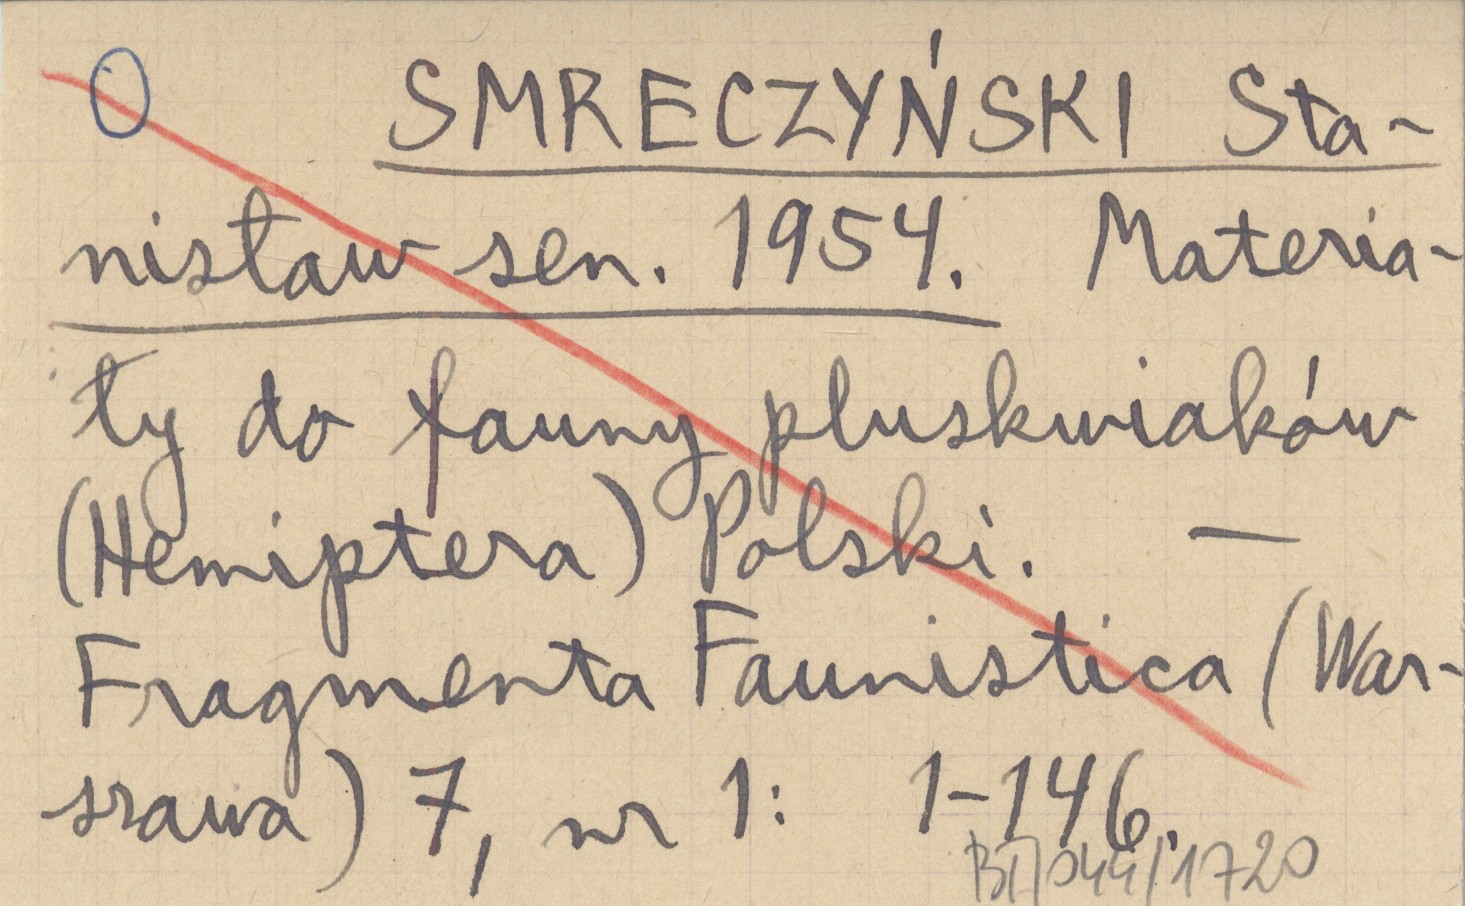 O SMRECZYŃSKI Sta-
nisław sen. 1954. Materia-
ły do fauny pluskwiaków
(Hemiptera) Polski. —
Fragmenta Faunistica (War-
szawa) 7, nr 1: 1-146.